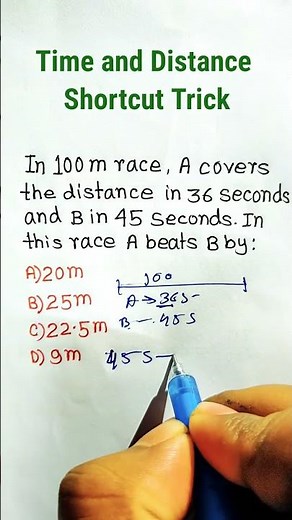 Time and Distance
Shortcut Trick
In 100m race, A covers
the distance in 36 seconds
and B in 45 seconds. In
this race A beats B by:
A) 20m
B) 25m
C) 22.5m
D) 9m
100
A → 36s
B → 45s
45s